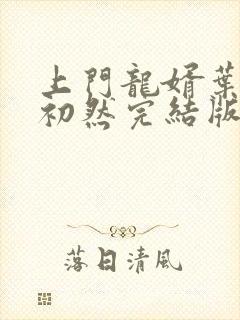 上門龍婿葉
初然完結版
落日清風